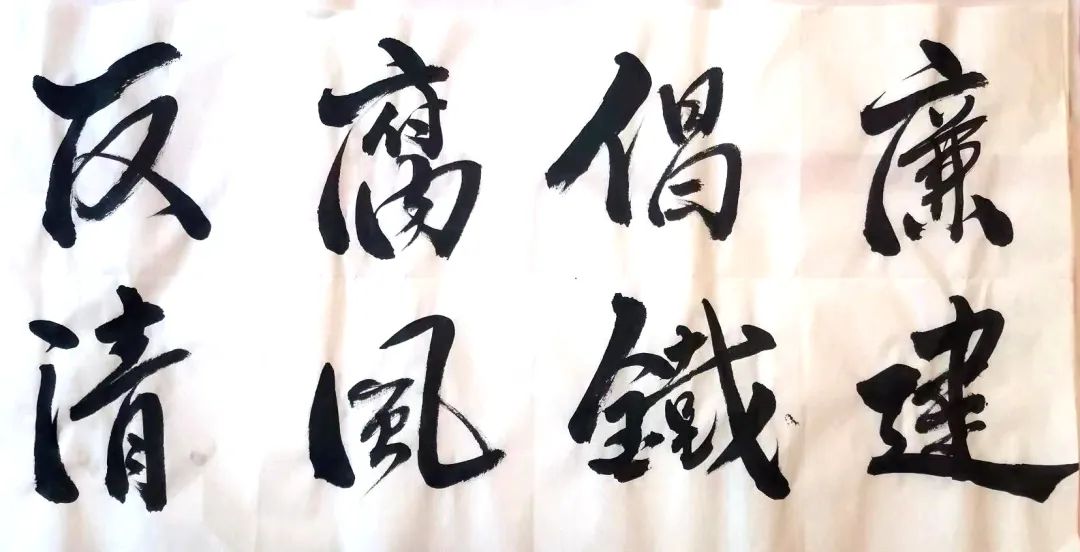 反腐倡廉
清風鐵建